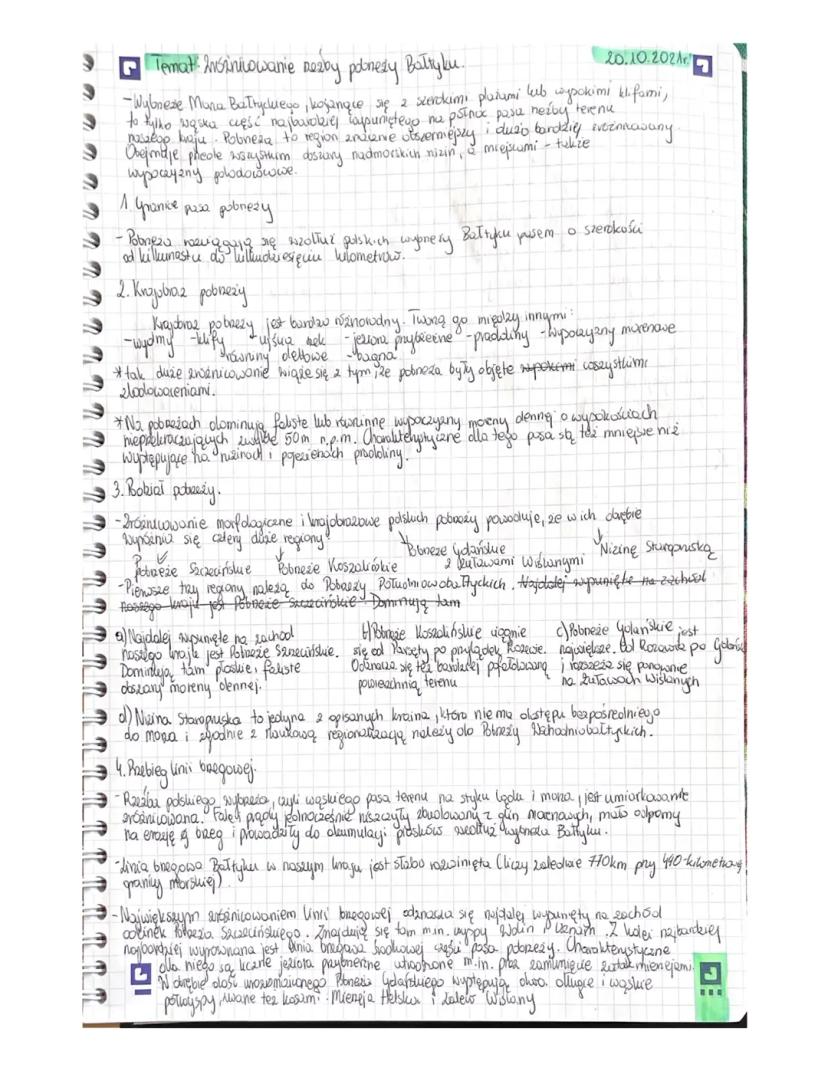 Temat: Zróżnicowanie rzeźby pobrzeży Bałtyku.
20.10.2021r.
- Wybrzeże Morza Bałtyckiego, kojarzące się z szerokimi plażami lub wysokimi klifami,
to tylko wąska część najbardziej wysuniętego na północ pasa rzeźby terenu
naszego kraju. Pobrzeża to region znacznie obszerniejszy i dużo bardziej zróżnicowany.
Obejmuje przede wszystkim obszary nadmorskich nizin, a miejscami - także
wypoczyzny polodowcowe.
1. Granice pasa pobrzeży
- Pobrzeża rozciągają się wzdłuż polskich wybrzeży Bałtyku pasem o szerokości
od kilkunastu do kilkudziesięciu kilometrów.
2. Krajobraz pobrzeży
Krajobraz pobrzeży jest bardzo różnorodny. Tworzą go między innymi:
- wydmy - klify - ujścia rzek - jeziora przybrzeżne - pradoliny - wypoczyzny morenowe
- równiny deltowe - bagna
* tak duże zróżnicowanie wiąże się z tym, że pobrzeża były objęte wszystkimi
zlodowaceniami.
* Na pobrzeżach dominują faliste lub równinne wypoczyzny moreny dennej o wysokościach
nieprzekraczających zwykle 50m n.p.m. Charakterystyczne dla tego pasa są też mniejsze niż
występujące na nizinach i pojezierzach pradoliny.
3. Podział pobrzeży.
- Zróżnicowanie morfologiczne i krajobrazowe polskich pobrzeży powoduje, że w ich obrębie
wyróżnia się cztery duże regiony:
Pobrzeże Szczecińskie Pobrzeże Koszalińskie Pobrzeże Gdańskie z Żuławami Wiślanymi Nizinę Staropruską
- Pierwsze trzy regiony należą do Pobrzeży Południowobałtyckich. Najdalej wysunięte na zachód
naszego kraju jest Pobrzeże Szczecińskie Dominują tam
a) Najdalej wysunięte na zachód
naszego kraju jest Pobrzeże Szczecińskie.
Dominują tam płaskie i faliste
obszary moreny dennej.
b) Pobrzeże Koszalińskie ciągnie
się od Parsęty po przylądek Rozewie.
Odznacza się też bardziej pofałdowaną
powierzchnią terenu
c) Pobrzeże Gdańskie jest
największe. Od Rozewia po Gdańsk
i rozszerza się ponownie
na Żuławach Wiślanych
d) Nizina Staropruska to jedyna z opisanych kraina, która nie ma dostępu bezpośredniego
do morza i zgodnie z naukową regionalizacją należy do Pobrzeży Wschodniobałtyckich.
4. Przebieg linii brzegowej.
- Rzeźba polskiego wybrzeża, czyli wąskiego pasa terenu na styku lądu i morza, jest umiarkowanie
zróżnicowana. Fale i prądy jednocześnie niszczyły zbudowany z glin morenowych, mało odporny
na erozję brzeg i prowadziły do akumulacji piasków wzdłuż wybrzeża Bałtyku.
- Linia brzegowa Bałtyku w naszym kraju jest słabo rozwinięta (liczy zaledwie 770km przy 440-kilometrowej
granicy morskiej)
- Największym zróżnicowaniem linii brzegowej odznacza się najdalej wysunięty na zachód
odcinek Pobrzeża Szczecińskiego. Znajdują się tam m.in. wyspy Wolin i Uznam. Z kolei najbardziej
najbardziej wyrównana jest linia brzegowa środkowej części pasa pobrzeży. Charakterystyczne
dla niego są liczne jeziora przybrzeżne utworzone m.in. przez zamknięcie zatok mierzejami.
W obrębie dość urozmaiconego Pobrzeża Gdańskiego występują dwa długie i wąskie
półwyspy, zwane też kosami: Mierzeja Helska i zalew Wiślany